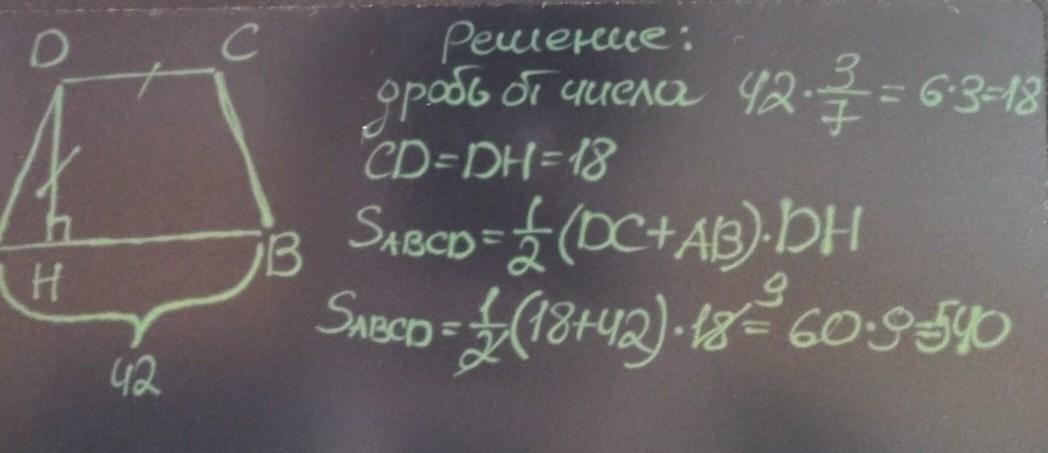 D C
Решение:
дробь от числа 42·3/7=6·3=18
CD=DH=18
S_ABCD=1/2(DC+AB)·DH
H B
S_ABCD=1/2(18+42)·18=60·9=540
9
42